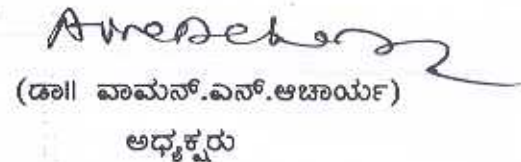 (ಡಾ|| ವಾಮನ್.ಎನ್.ಆಚಾರ್ಯ)
ಅಧ್ಯಕ್ಷರು